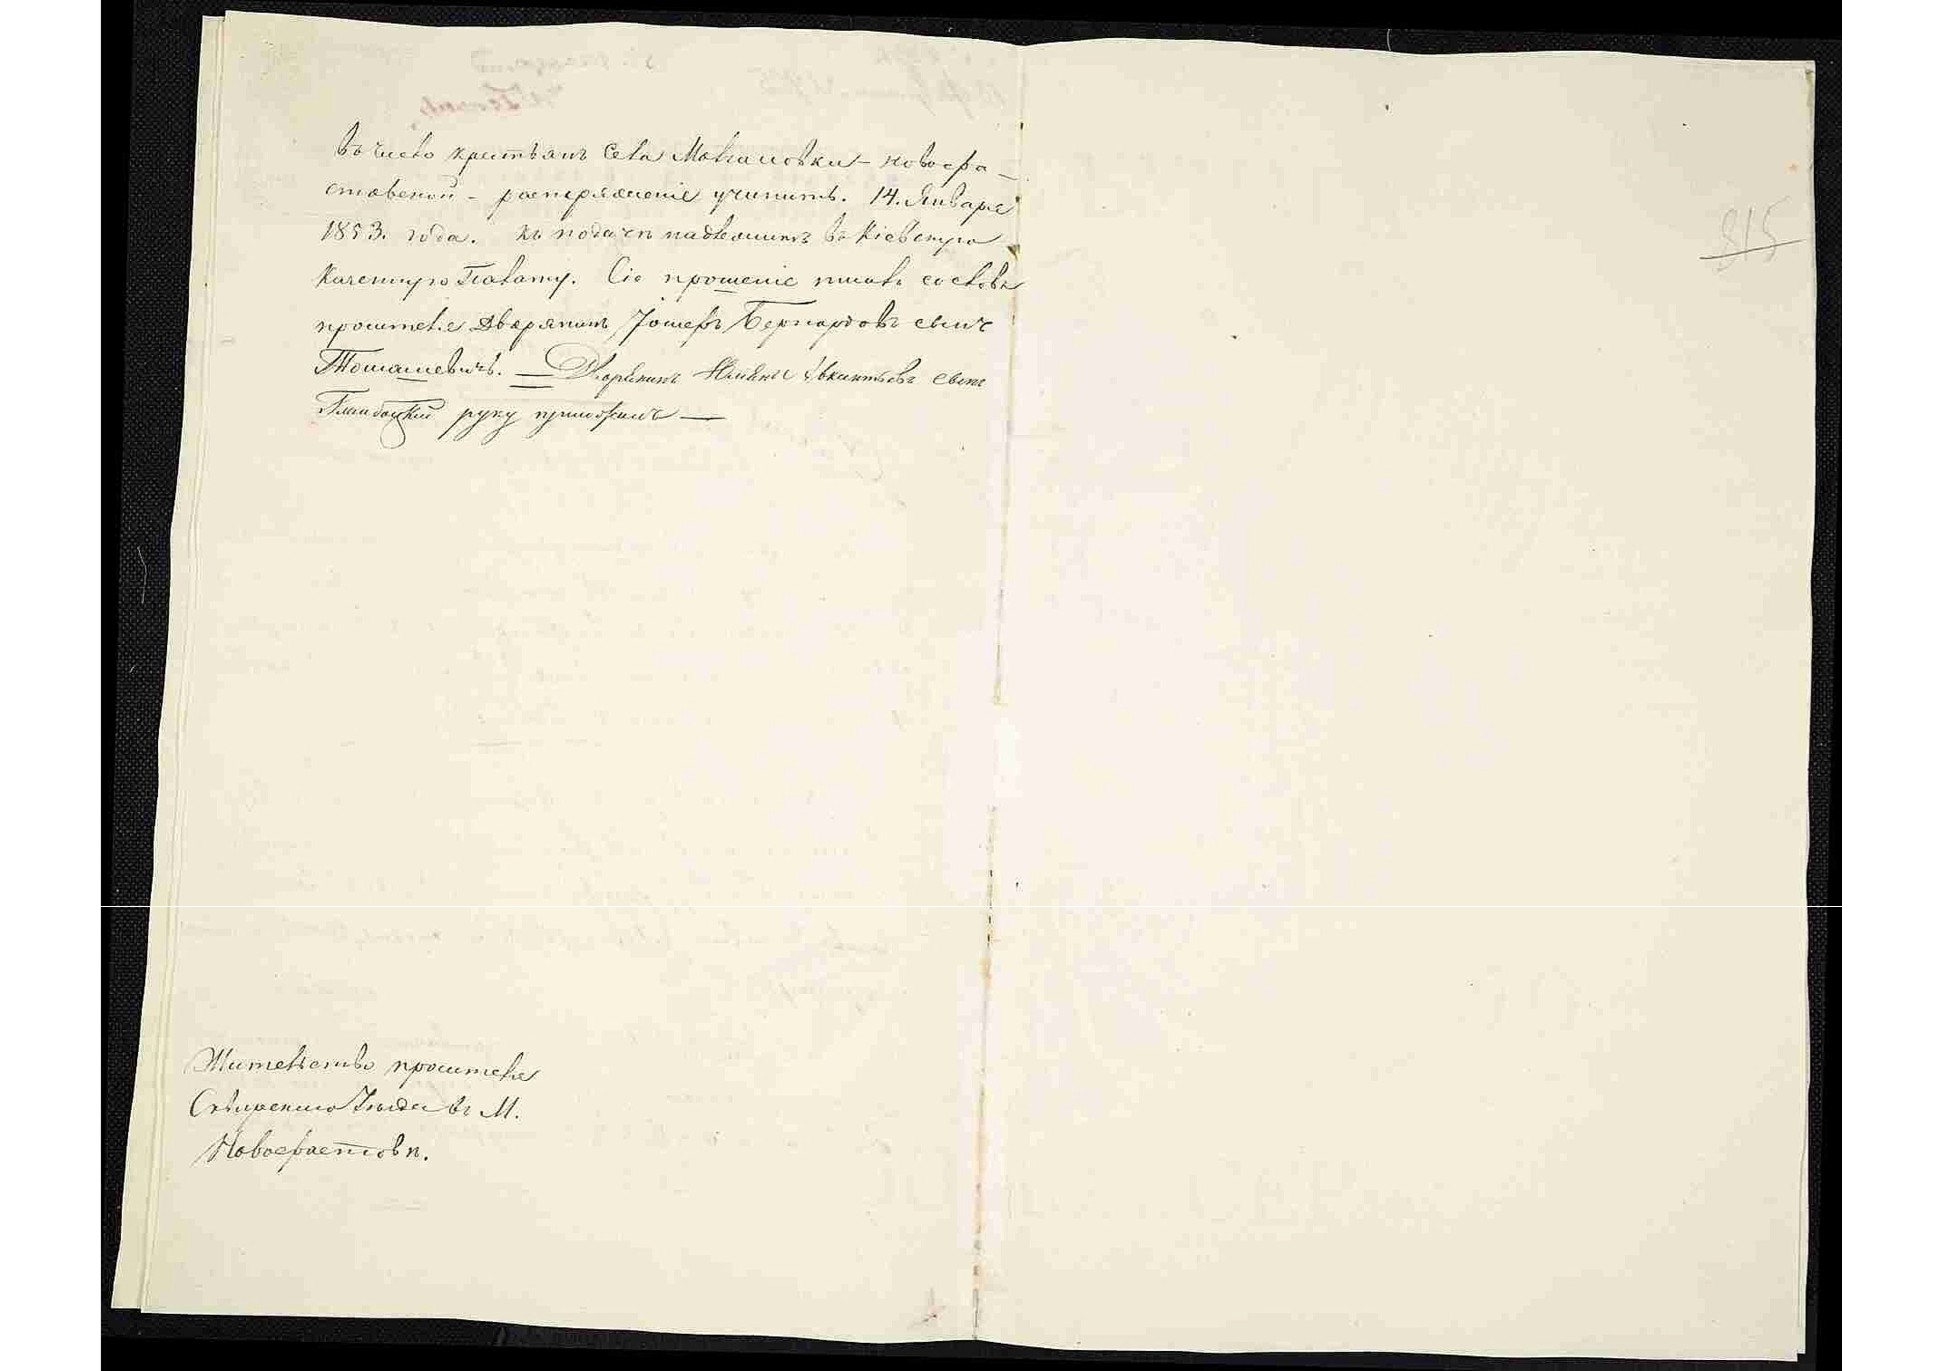 въ число крестьянъ Села Мохначовки – новохва–
стовской – распоряженіе учинить. 14. Января
1853. года. къ подачѣ надлежитъ въ Кіевскую
Казенную Палату. Сіе прошеніе писалъ со словъ
просителя Дворянинъ Іосифъ Бернардовъ сынъ
Томашевичъ. Дворянинъ сынъ
руку приложилъ —
Жительство просителя
Сквирскаго Уѣзда въ М.
Новохвастовѣ.
815